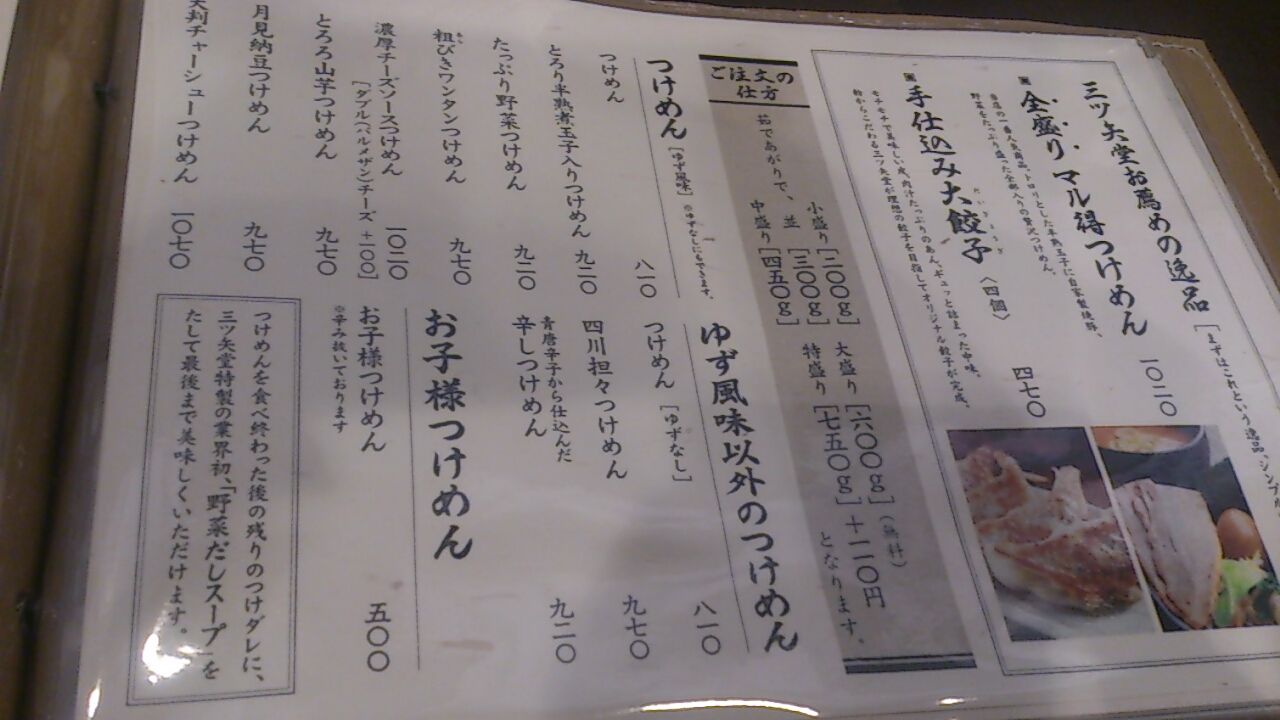 三ツ矢堂お薦めの逸品
[まずはこれという逸品、シンプル
全盛りマル得つけめん 一〇二〇
当店の一番人気商品、トロリとした半熟玉子に自家製焼豚、
野菜をたっぷり盛った全部入りの贅沢つけめん。
手仕込み大餃子〈四個〉 四七〇
モチモチで美味しい皮、肉汁たっぷりのあん、ギュッと詰まった中味。
粉からこだわる三ツ矢堂が理想の餃子を目指してオリジナル餃子が完成。
ご注文の
仕方
茹であがりで、
小盛り[二〇〇g]
並[三〇〇g]
中盛り[四五〇g]
(無料)
大盛り[六〇〇g]
特盛り[七五〇g]
+一一〇円
となります。
つけめん[ゆず風味]※ゆずなしにもできます。
つけめん 八一〇
とろり半熟煮玉子入りつけめん 九二〇
たっぷり野菜つけめん 九二〇
粗びきワンタンつけめん 九七〇
濃厚チーズソースつけめん 一〇二〇
[「ダブル(パルメザン)チーズ+一〇〇]
とろろ山芋つけめん 九七〇
月見納豆つけめん 九七〇
大判チャーシューつけめん 一〇七〇
ゆず風味以外のつけめん
つけめん[ゆずなし] 八一〇
四川担々つけめん 九七〇
青唐辛子から仕込んだ
辛しつけめん 九二〇
お子様つけめん
お子様つけめん 五〇〇
※辛み抜いております
つけめんを食べ終わった後の残りのつけダレに、
三ツ矢堂特製の業界初、「野菜だしスープ」を
たして最後まで美味しくいただけます。